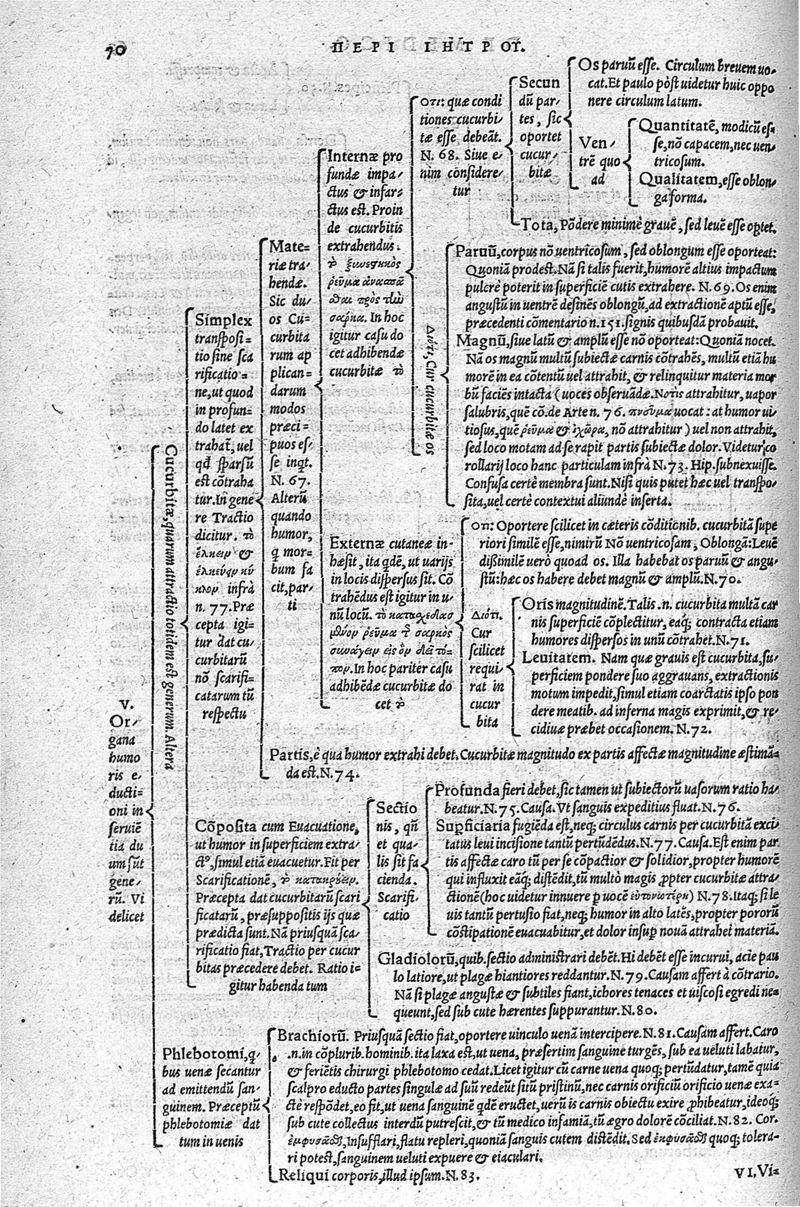 70
ΠΕΡΙ ΙΗΤΡΟΥ.
V.
Or-
gana
humo
ris e-
ducti=
oni in
seruiē
tia du
um sūt
gene-
rū. Vi
delicet
Cucurbitæ, quarum attractio totidem est generum. Altera
Simplex
transposi=
tio sine sca
rificatio=
ne, ut quod
in profun-
do latet ex
trahat, uel
qd sparsū
est cōtraha
tur. In gene
re Tractio
dicitur. τὸ
ἕλκειν &
infrà
n. 77. Præ
cepta igi-
tur dat cu-
curbitarū
nō scarifi-
catarum tū
respectu
Mate=
riæ tra-
hendæ.
Sic du-
os Cu-
curbita
rum ap
plican-
darum
modos
præci-
puos es-
se inqt.
N. 67.
Alterū
quando
humor,
q mor-
bum fa
cit, par-
ti
Internæ pro
fundæ impa-
ctus & infar-
ctus est. Proin
de cucurbitis
extrahendus.
σάρκα. In hoc
igitur casu do
cet adhibendæ
cucurbitæ τὸ
ὅτι: quæ condi
tiones cucurbi-
tæ esse debeāt.
N. 68. Siue e-
nim considere-
tur
Secun
dū par-
tes, sic
oportet
cucur-
bitæ
Os paruū esse. Circulum breuem uo-
cat. Et paulo pòst uidetur huic oppo
nere circulum latum.
Ven-
trē quo
ad
Quantitatē, modicū es-
se, nō capacem, nec uen-
tricosum.
Qualitatem, esse oblon-
ga forma.
Tota, Pōdere minimè grauē, sed leuē esse optet.
Διότι, Cur cucurbitæ os
Paruū, corpus nō uentricosum, sed oblongum esse oporteat:
Quoniā prodest. Nā si talis fuerit, humorē altius impactum
pulcrè poterit in superficiē cutis extrahere. N. 69. Os enim
angustū in uentrē desinēs oblongū, ad extractionē aptū esse,
præcedenti cōmentario n. 151. signis quibusdā probauit.
Magnū, siue latū & amplū esse nō oporteat: Quoniā nocet.
Nā os magnū multū subiectæ carnis cōtrahēs, multū etiā hu
morē in ea cōtentū uel attrahit, & relinquitur materia mor
bū faciēs intacta (uoces obseruādæ. attrahitur, uapor
salubris, quē cō. de Arte n. 76. uocat: at humor ui
tiosus, quē ῥεῦμα & ἰχῶρα, nō attrahitur) uel non attrahit,
sed loco motam ad se rapit partis subiectæ dolor. Videtur, co
rollarij loco hanc particulam infrà N. 73. Hip. subnexuisse.
Confusa certè membra sunt. Nisi quis putet hæc uel transpo-
sita, uel certè contextui aliundè inserta.
Externæ cutaneæ in-
hæsit, ita qdē, ut uarijs
in locis dispersus sit. Cō
trahēdus est igitur in u-
nū locū.
ῥεῦμα
In hoc pariter casu
adhibēdæ cucurbitæ do
cet τὸ
ὅτι: Oportere scilicet in cæteris cōditionib. cucurbitā supe
riori similē esse, nimirū Nō uentricosam, Oblongā: Leuē
dißimilē uerò quoad os. Illa habebat os paruū & angu-
stū: hæc os habere debet magnū & amplū. N. 70.
Διότι.
Cur
scilicet
requi-
rat in
cucur
bita
Oris magnitudinē. Talis .n. cucurbita multā car
nis superficiē cōplectitur, eaq; contracta etiam
humores dispersos in unū cōtrahet. N. 71.
Leuitatem. Nam quæ grauis est cucurbita, su-
perficiem pondere suo aggrauans, extractionis
motum impedit, simul etiam coarctatis ipso pon
dere meatib. ad inferna magis exprimit, & re-
cidiuæ præbet occasionem. N. 72.
Partis, è qua humor extrahi debet. Cucurbitæ magnitudo ex partis affectæ magnitudine æstimā-
da est. N. 74.
Cōposita cum Euacuatione,
ut humor in superficiem extra-
ctº, simul etiā euacuetur. Fit per
Scarificationē,
Præcepta dat cucurbitarū scari
ficatarū, præsuppositis ijs quæ
prædicta sunt. Nā priusquā sca-
rificatio fiat, Tractio per cucur
bitas præcedere debet. Ratio i-
gitur habenda tum
Sectio
nis, qñ
et qua-
lis sit fa
cienda.
Scarifi-
catio
Profunda fieri debet, sic tamen ut subiectorū uasorum ratio ha-
beatur. N. 75. Causa. Vt sanguis expeditius fluat. N. 76.
Supficiaria fugiēda est, neq; circulus carnis per cucurbitā exci
tatus leui incisione tantū pertūdēdus. N. 77. Causa. Est enim par
tis affectæ caro tū per se cōpactior & solidior, propter humorē
qui influxit eāq; distēdit, tū multò magis ꝓpter cucurbitæ attra
ctionē (hoc uidetur innuere p uocē ) N. 78. Itaq; si le
uis tantū pertusio fiat, neq; humor in alto latēs, propter pororū
cōstipationē euacuabitur, et dolor insup nouā attrahet materiā.
Gladiolorū, quib. sectio administrari debēt. Hi debēt esse incurui, acie pau
lo latiore, ut plagæ hiantiores reddantur. N. 79. Causam affert à cōtrario.
Nā si plagæ angustæ & subtiles fiant, ichores tenaces et uiscosi egredi ne-
queunt, sed sub cute hærentes suppurantur. N. 80.
Phlebotomi, q-
bus uenæ secantur
ad emittendū san-
guinem. Præceptū
phlebotomiæ dat
tum in uenis
Brachiorū. Priusquā sectio fiat, oportere uinculo uenā intercipere. N. 81. Causam affert. Caro
.n. in cōplurib. hominib. ita laxa est, ut uena, præsertim sanguine turgēs, sub ea ueluti labatur,
& feriētis chirurgi phlebotomo cedat. Licet igitur cū carne uena quoq; pertūdatur, tamē quia
scalpro educto partes singulæ ad suū redeūt sitū pristinū, nec carnis orificiū orificio uenæ exa-
ctè respōdet, eo fit, ut uena sanguinē qdē eructet, uerū is carnis obiectu exire ꝓhibeatur, ideoq;
sub cute collectus interdū putrescit, & tū medico infamiā, tū ægro dolorē cōciliat. N. 82. Cor.
Insufflari, flatu repleri, quoniā sanguis cutem distēdit. Sed quoq; tolera-
ri potest, sanguinem ueluti expuere & eiaculari.
Reliqui corporis, illud ipsum. N. 83.
VI. Vi=